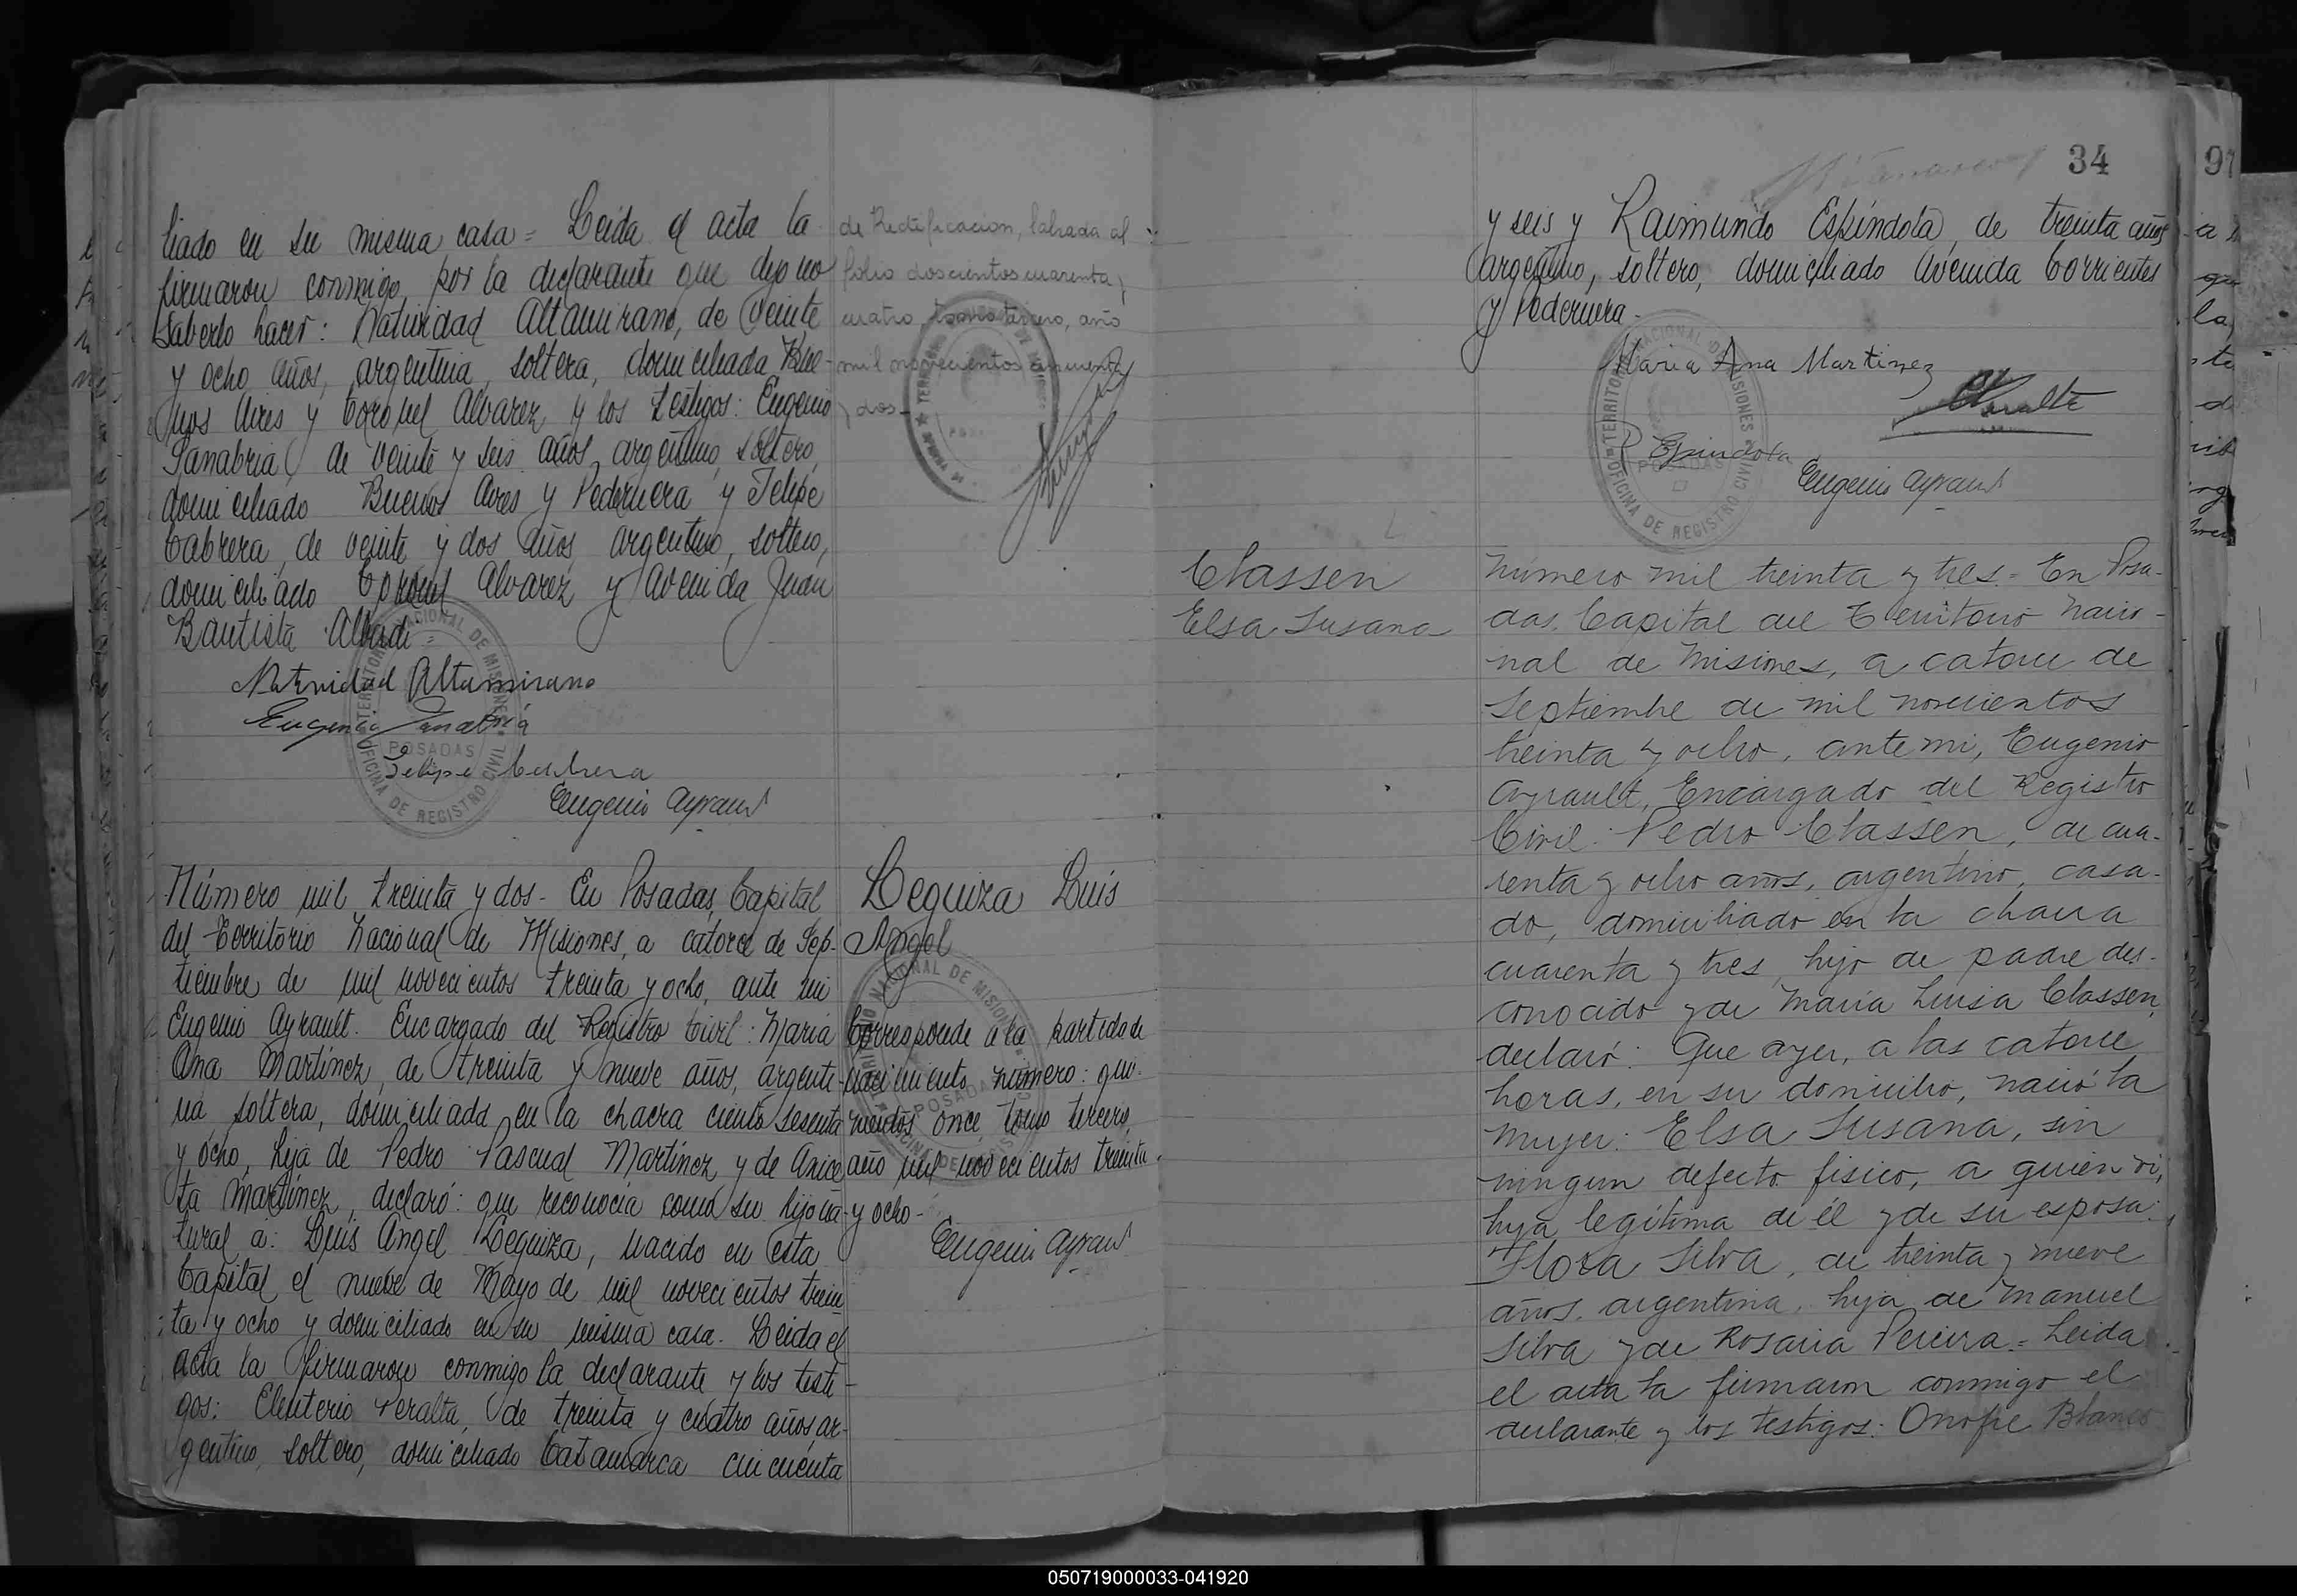 liado en su misma casa = Leida el acta la
firmaron conmigo, por la declarante que dijo no
saberlo hacer: Natividad Altamirano, de veinte
y ocho años, argentina, soltera, domiciliada Bue-
nos Aires y Coronel Alvarez y los testigos: Eugenio
Sanabria, de veinte y seis años, argentino, soltero,
domiciliado Buenos Aires y Pedernera y Felipe
Cabrera, de veinte y dos años, argentino, soltero,
domiciliado Coronel Alvarez y Avenida Juan
Bautista Alberdi =
Natividad Altamirano
Eugenio Sanabria
Felipe Cabrera
Eugenio Ayrault
TERRITORIO NACIONAL DE MISIONES
POSADAS
OFICINA DE REGISTRO CIVIL
de Rectificacion, labrada al
folio doscientos cuarenta y
cuatro, tomo tercero, año
mil novecientos cincuenta
y dos -
Número mil treinta y dos - En Posadas, Capital
del Territorio Nacional de Misiones, a catorce de Sep-
tiembre de mil novecientos treinta y ocho, ante mi
Eugenio Ayrault. Encargado del Registro Civil: Maria
Ana Martínez, de treinta y nueve años, argenti-
na, soltera, domiciliada en la chacra ciento sesenta
y ocho, hija de Pedro Pascual Martínez y de Anice
ta Martínez, declaró: que reconocía como su hijo na-
tural á: Luis Angel Leguiza, nacido en esta
Capital el nueve de Mayo de mil novecientos trein
ta y ocho y domiciliado en su misma casa. Leida el
acta la firmaron conmigo la declarante y los testi-
gos: Eleuterio Peralta, de treinta y cuatro años, ar-
gentino, soltero, domiciliado Catamarca cincuenta
Leguiza Luis
Angel
Corresponde a la partida de
nacimiento número: qui-
nientos once, tomo tercero,
año mil novecientos treinta
y ocho -
Eugenio Ayrault
34
y seis y Raimundo Espíndola, de treinta años
argentino, soltero, domiciliado Avenida Corrientes
y Pedernera -
Maria Ana Martinez
EPeralta
R Espindola
Eugenio Ayrault
TERRITORIO NACIONAL DE MISIONES
POSADAS
OFICINA DE REGISTRO CIVIL
Classen
Elsa Susana
Número mil treinta y tres = En Posa-
das, Capital del Territorio Nacio-
nal de Misiones, a catorce de
Septiembre de mil novecientos
treinta y ocho, ante mi, Eugenio
Ayrault, Encargado del Registro
Civil: Pedro Classen, de cua-
renta y ocho años, argentino, casa-
do, domiciliado en la chacra
cuarenta y tres, hijo de padre des-
conocido y de María Luisa Classen,
declaró: Que ayer, a las catorce
horas, en su domicilio, nació la
mujer: Elsa Susana, sin
ningun defecto fisico, a quien ví,
hija legítima de él y de su esposa:
Flora Silva, de treinta y nueve
años, argentina, hija de Manuel
Silva y de Rosaria Pereira = Leida
el acta la firmaron conmigo el
declarante y los testigos: Onofre Blanco
97
050719000033-041920